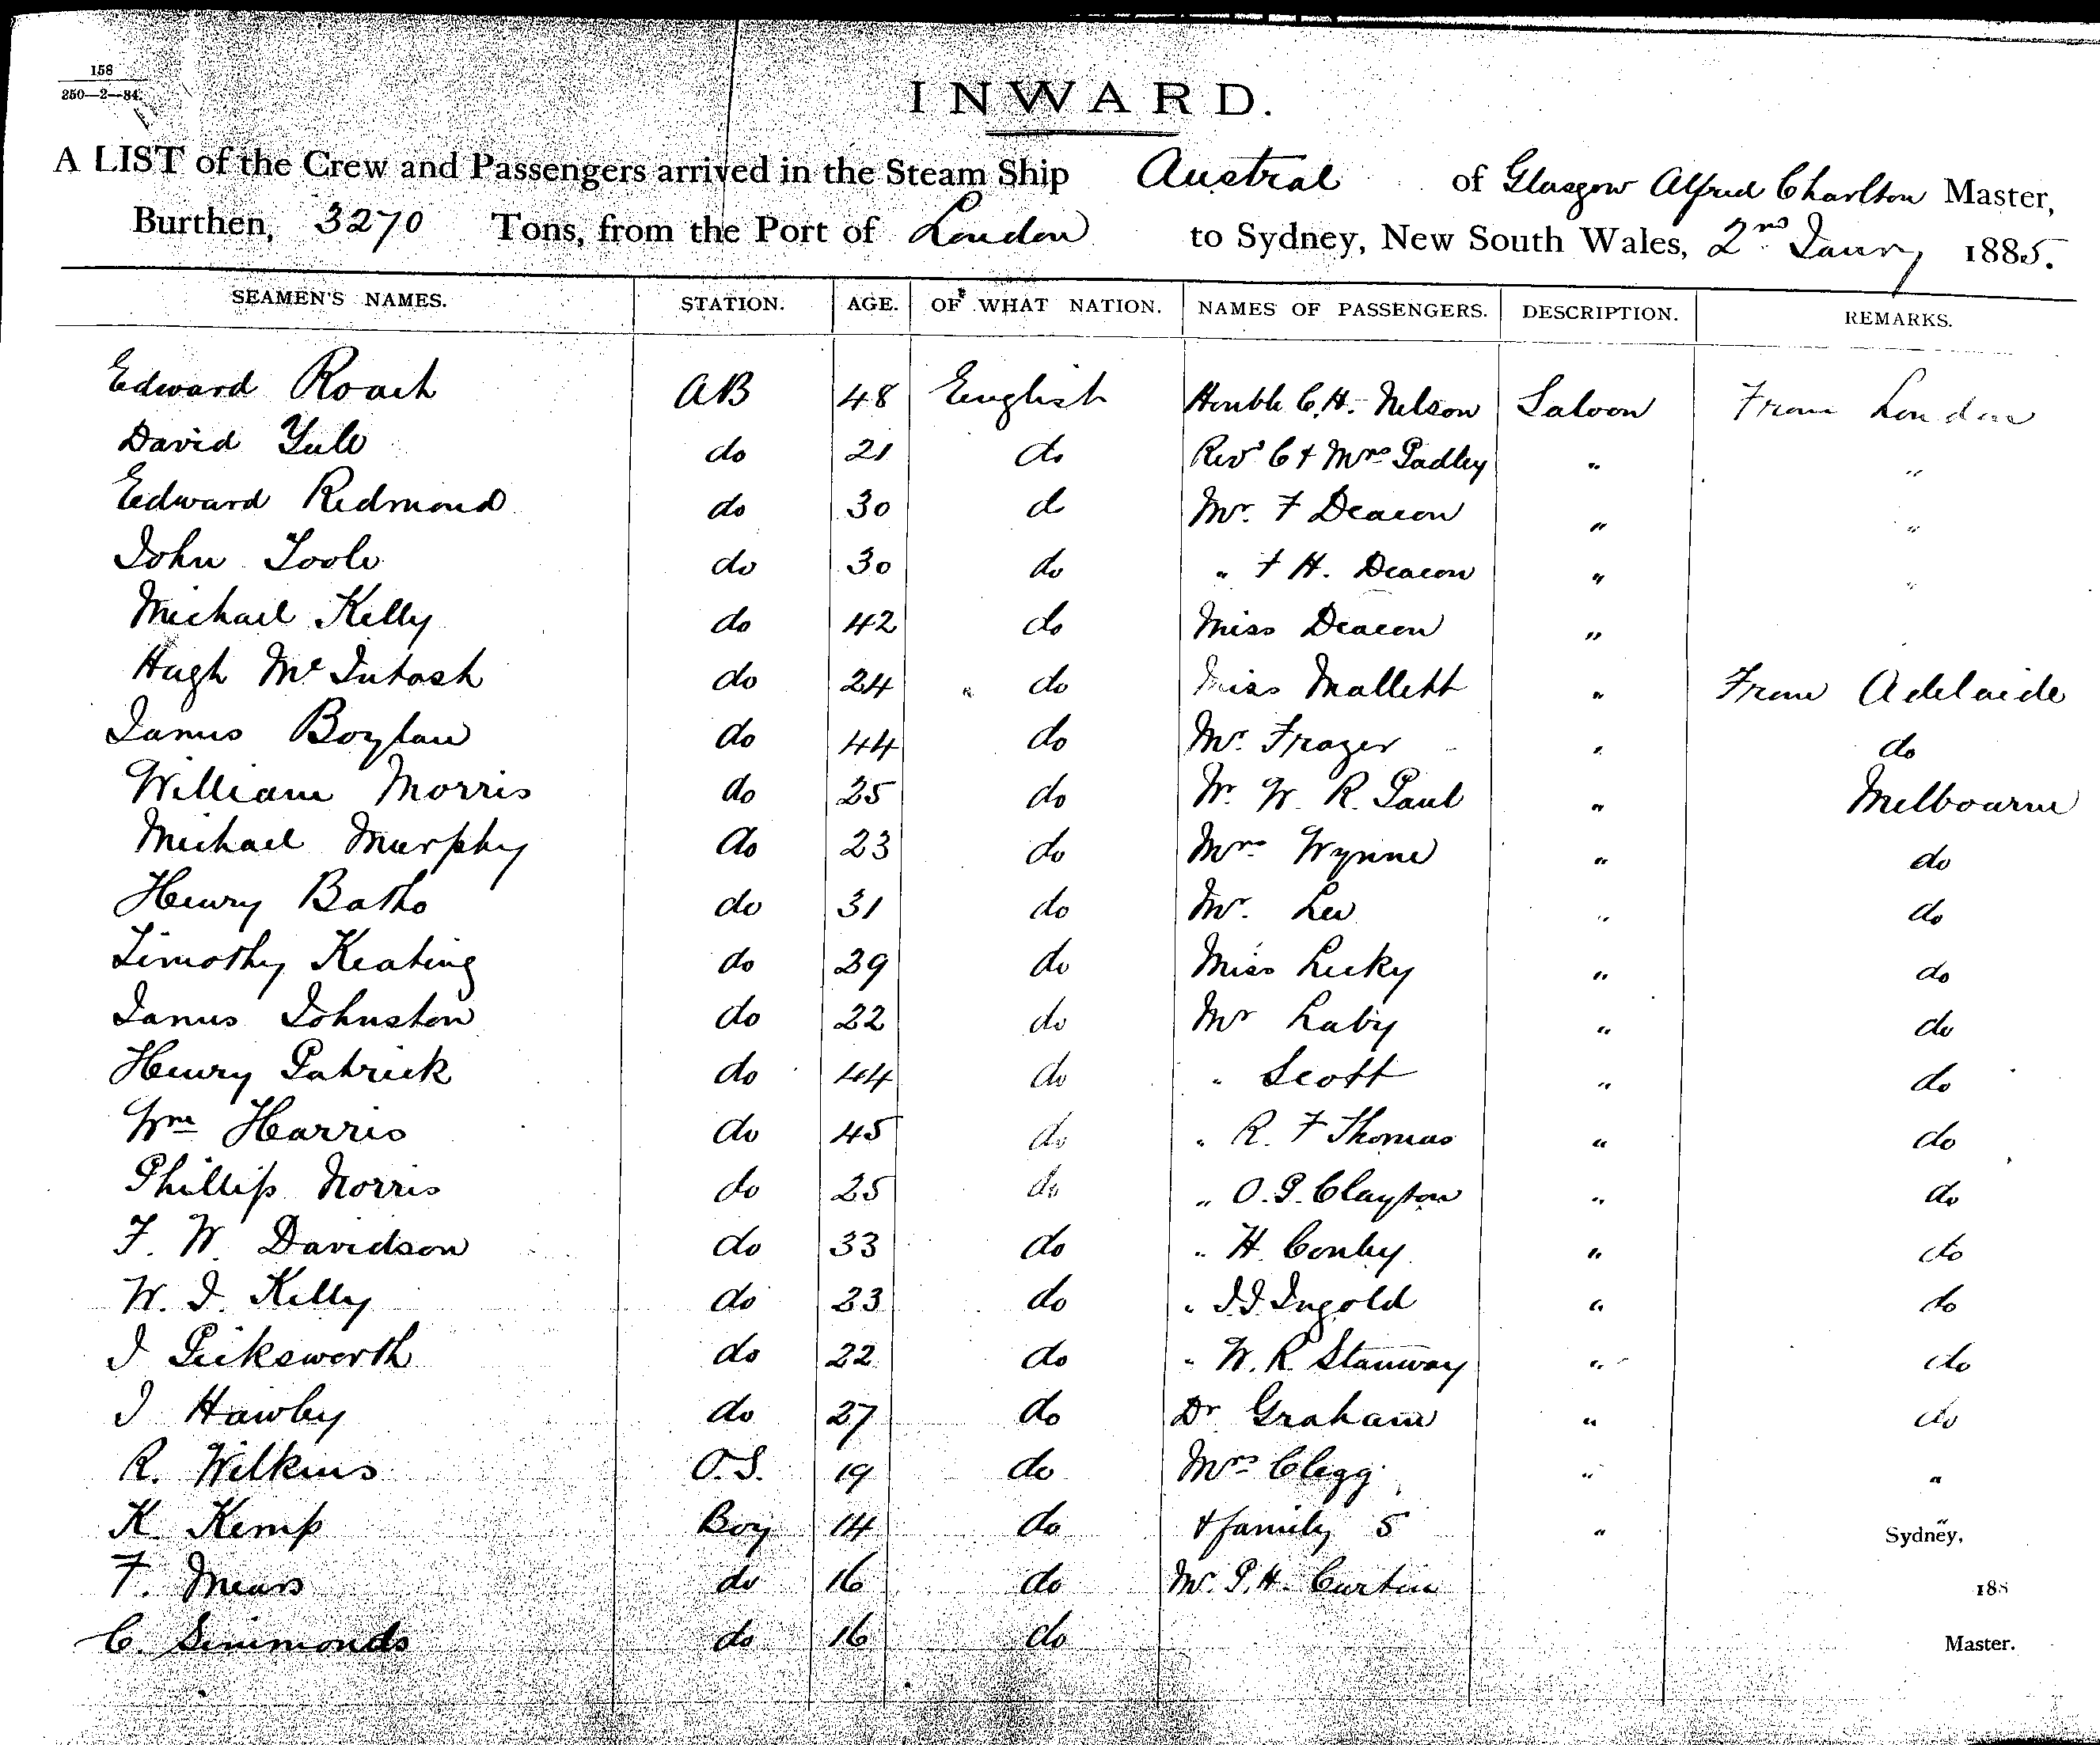 158
250—2—84.
INWARD.
A LIST of the Crew and Passengers arrived in the Steam Ship Austral of Glasgow Alfred Charlton Master,
Burthen, 3270 Tons, from the Port of London to Sydney, New South Wales, 2nd Janry 1885.
SEAMEN'S NAMES. STATION. AGE. OF WHAT NATION. NAMES OF PASSENGERS. DESCRIPTION. REMARKS.
Edward Roach AB 48 English Honble C. H. Nelson Saloon From London
David Yule do 21 do Revd C & Mrs Padley " "
Edward Redmond do 30 do Mr. F Deacon " "
John Toole do 30 do " F H. Deacon " "
Michael Kelly do 42 do Miss Deacon "
Hugh McIntosh do 24 do Miss Mallett " From Adelaide
James Boylan do 44 do Mr. Frazer " do
William Morris do 25 do Mr. W. R. Paul " Melbourne
Michael Murphy do 23 do Mrs Wynne " do
Henry Batho do 31 do Mr. Lee " do
Timothy Keating do 39 do Miss Lecky " do
James Johnston do 22 do Mr Laby " do
Henry Patrick do 44 do " Scott " do
Wm Harris do 45 do " R. F Thomas " do
Phillip Norris do 25 do " O. P. Clayton " do
F. W. Davidson do 33 do " H. Conley " do
W. J. Kelly do 23 do " J J Ingold " do
J Picksworth do 22 do " W. R Stanway " do
J Hawley do 27 do Dr Graham " do
R. Wilkins O.S. 19 do Mrs Clegg " "
K Kemp Boy 14 do & family 5 " "
Sydney,
F. Mears do 16 do Mr. P. H. Curtin 188
C. Simmonds do 16 do Master.